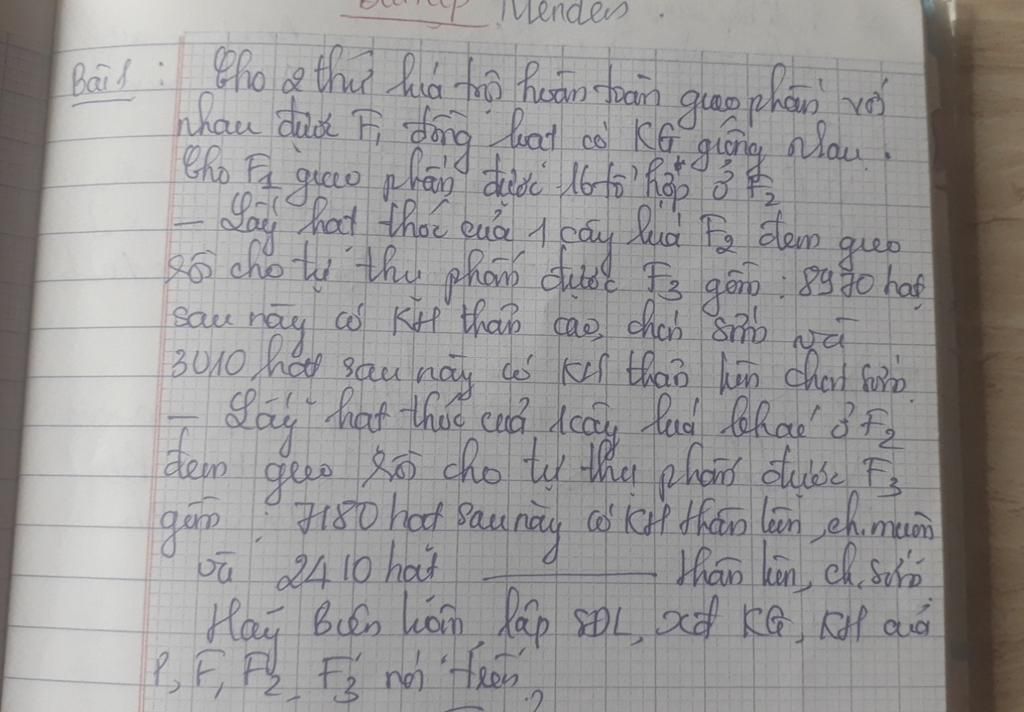 Menđen.
Bài 1: Cho 2 thứ lúa trộ hoàn toàn giao phấn với
nhau được F1 đồng loạt có KG giống nhau.
Cho F1 giao phấn được 16 tổ hợp ở F2
- Lấy hạt thóc của 1 cây lúa F2 đem gieo
rồi cho tự thụ phấn được F3 gồm: 8970 hạt
sau này có KH thân cao, chín sớm và
3010 hạt sau này có KH thân lùn chín sớm.
- Lấy hạt thóc của 1 cây lúa khác ở F2
đem gieo rồi cho tự thụ phấn được F3
gồm: 7180 hạt sau này có KH thân lùn, ch.muộn
và 2410 hạt ——— thân lùn, ch.sớm.
Hãy biện luận, lập SĐL, xđ KG, KH của
P, F1, F2, F3 nói trên